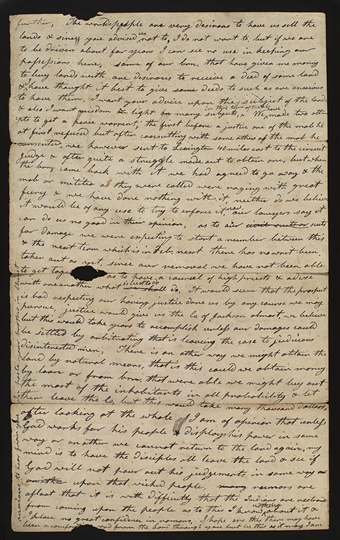 further, The world's people are very desirous to have us sell the
lands & since you advised not to, I do not want to, but if we are
to be driven about for years I can see no use in keeping our
possessions here, some of our bret, that have given me money
to buy lands with are desirous to receive a deed of some land
& I have thought it best to give some deeds to such as are anxious
to have them. I want your advice upon this subject of the land
& also I want wisdom & light on many subjects, We made two attem-
pts to get a peace warrent, the first before a justice one of the mob he
at first refused but after consulting with some other of the mob he
consented, we however sent to Lexington 40 miles east to the circuit
judge & after quite a struggle made out to obtain one, but when
the bret came back with it we had agreed to go away & the
mob or militia as they were called were raging with great
fury & we have done nothing with it, neither do we believe
it would be of any use to try to enforce it, our lawyers say it
can do us no good in their opinion, as to suits
for damage we are expecting to start a number between this
& the next term which is in Feb. next There has now not been
taken out as yet, since our removal we have not been able
to get together as to have a council of high priests & advise
with one another what to do, It would seem that the prospect
is bad respecting our having justice done us by any course we may
pursue, justice would give us the Co of Jackson almost we believe
but this would take years to accomplish unless our damages could
be settled by arbitrating that is leaving the case to judicious
disinterested men, There is an other way we might obtain the
land by natural means, that is this could we obtain money
by loan or from bret that were able we might buy out
the most of the inhabitants in all probability & let
them leave the Co, but this would take many thousand dollars,
after looking at the whole I am of opinion that unless
God works for his people & displays his power in some
way or another we cannot return to the land again, my
mind is to have the disciples all leave the land & see if
God will not pour out his judgements in some way or
another upon that wicked people. rumors are
afloat that it is with difficulty that the Indians are restrained
from coming upon the people as to this I know nothing about it &
I place no great confidence in rumors, I hope